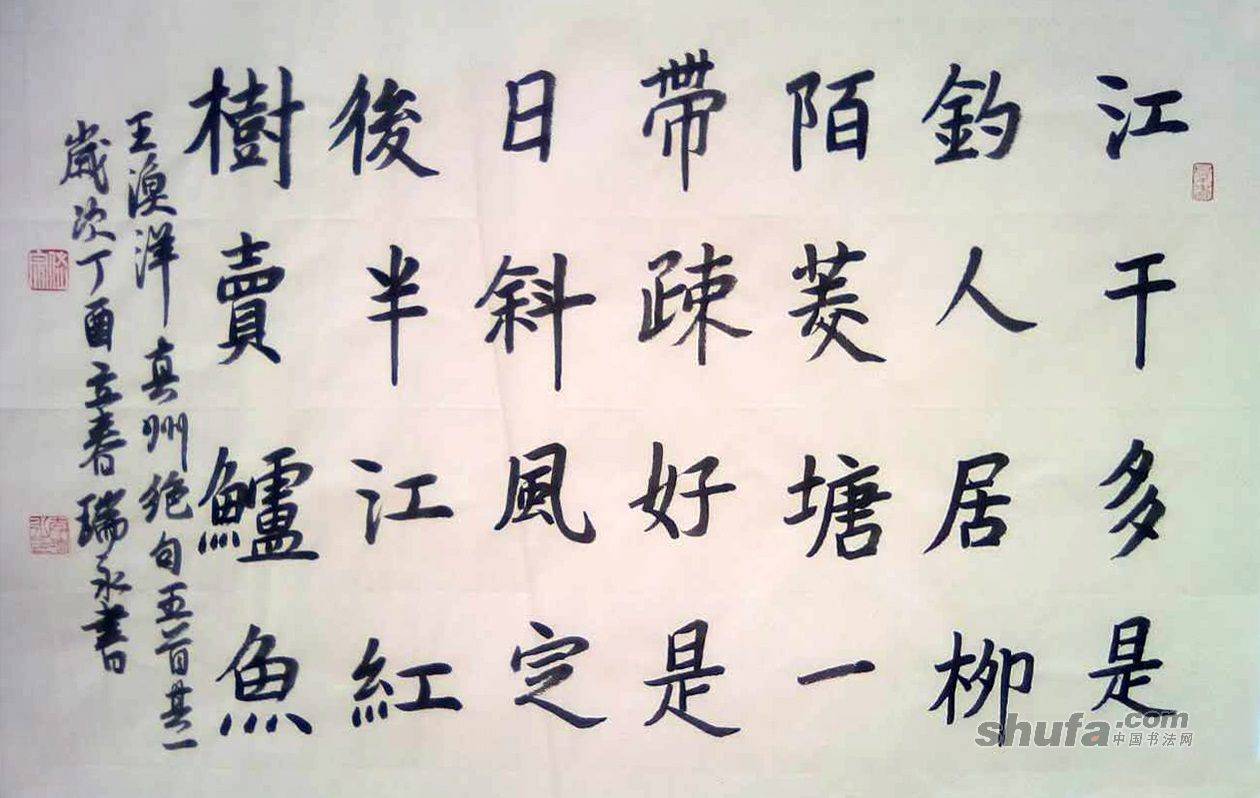 江干多是
釣人居柳
陌菱塘一
帶疎好是
日斜風定
後半江紅
樹賣鱸魚
王漁洋真州绝句五首其一
歲次丁酉立春日瑞永書
shufa.com
中国书法网